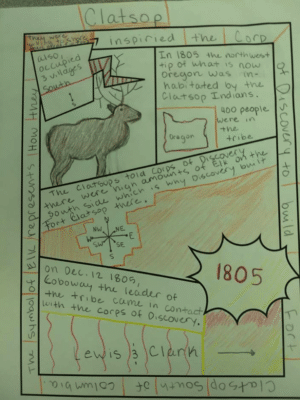 Clatsop
inspiried the Corp
of Discovery to build Fort
Clatsop South of Columbia.
The symbol of Elk represents How they
Also,
occupied
3 villages
South
In 1805 the northwest
tip of what is now
Oregon was in-
habitated by the
Clatsop Indians.
400 people
were in
the
tribe
Oregon
The Clatsops told Corps of Discovery
there were high amounts of Elk on the
South side which is why Discovery built
Fort Clatsop there.
N
NW NE
W E
SW SE
S
On Dec. 12 1805,
Coboway the leader of
the tribe came in contact
with the Corps of Discovery.
1805
Lewis & Clark